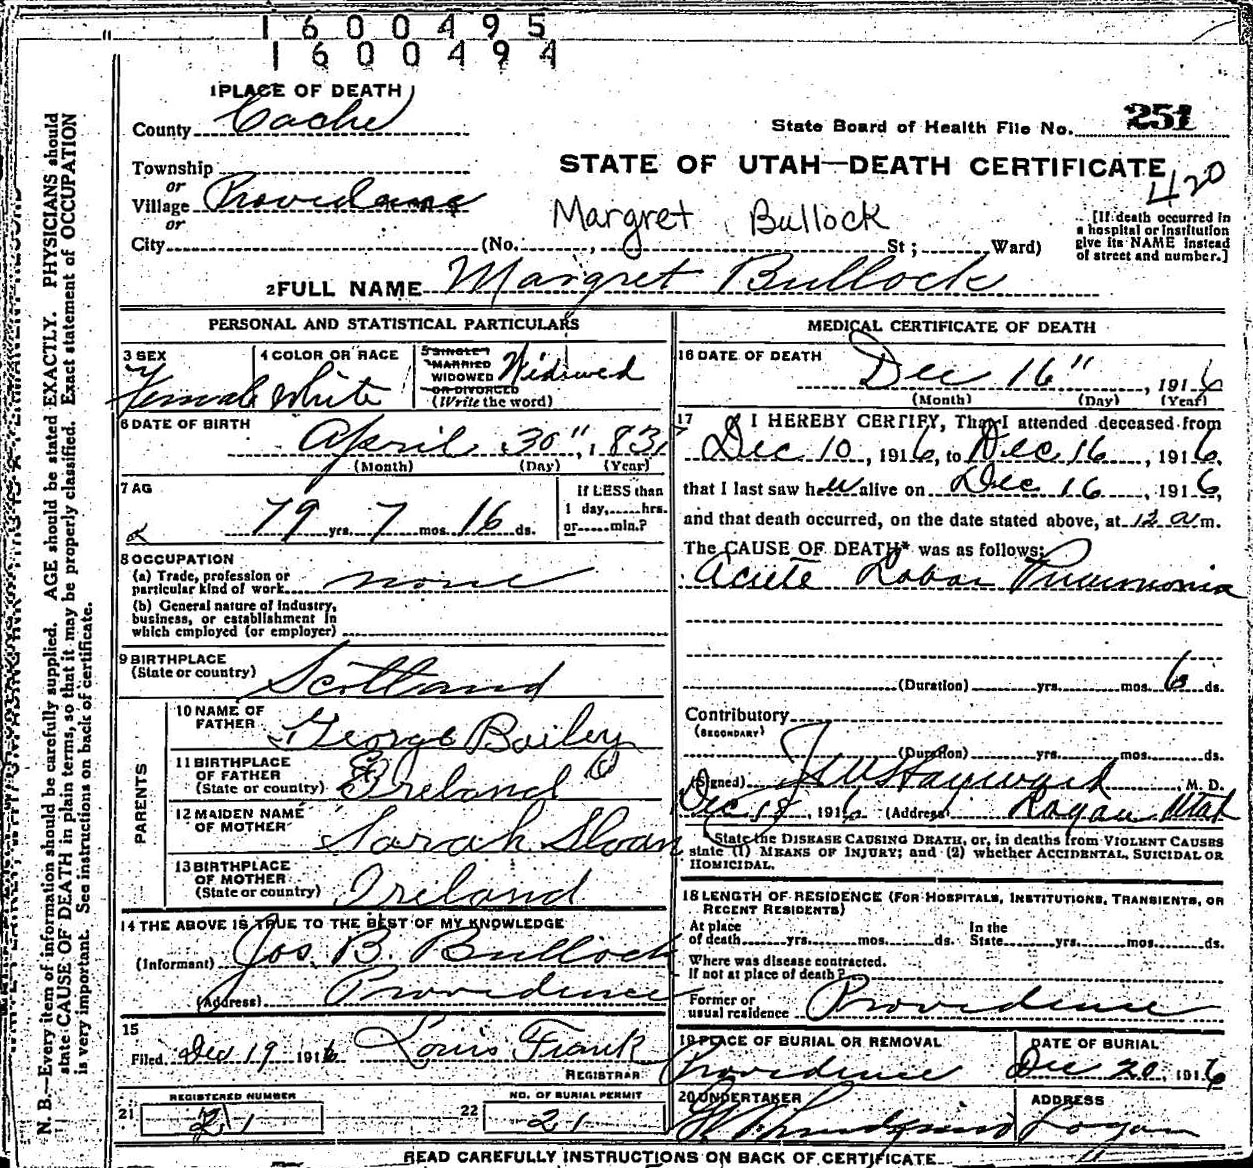 1600495
1600494
1 PLACE OF DEATH
County Cache
State Board of Health File No. 251
Township
or
Village Providence
or
STATE OF UTAH—DEATH CERTIFICATE
420
Margret Bullock
City (No. , St ; Ward)
[If death occurred in
a hospital or institution
give its NAME instead
of street and number.]
2 FULL NAME Margret Bullock
PERSONAL AND STATISTICAL PARTICULARS
3 SEX
Female
4 COLOR OR RACE
White
5 SINGLE
MARRIED
WIDOWED
OR DIVORCED
(Write the word)
Widowed
6 DATE OF BIRTH
April 30", 183
(Month) (Day) (Year)
7 AG
79 yrs. 7 mos. 16 ds.
If LESS than
1 day, hrs.
or min.?
8 OCCUPATION
(a) Trade, profession or
particular kind of work none
(b) General nature of industry,
business, or establishment in
which employed (or employer)
9 BIRTHPLACE
(State or country) Scotland
PARENTS
10 NAME OF
FATHER George Bailey
11 BIRTHPLACE
OF FATHER
(State or country) Ireland
12 MAIDEN NAME
OF MOTHER Sarah Sloan
13 BIRTHPLACE
OF MOTHER
(State or country) Ireland
14 THE ABOVE IS TRUE TO THE BEST OF MY KNOWLEDGE
(Informant) Jos. B. Bullock
(Address) Providence
15
Filed Dec 19 1916 Louis Frank
REGISTRAR
21
REGISTERED NUMBER
21
22
NO. OF BURIAL PERMIT
21
MEDICAL CERTIFICATE OF DEATH
16 DATE OF DEATH
Dec 16", 1916
(Month) (Day) (Year)
17 I HEREBY CERTIFY, That I attended deceased from
Dec 10, 1916, to Dec 16, 1916,
that I last saw her alive on Dec 16, 1916,
and that death occurred, on the date stated above, at 12 a m.
The CAUSE OF DEATH* was as follows:
Acute Lobar Pneumonia
(Duration) yrs. mos. 6 ds.
Contributory
(SECONDARY)
(Duration) yrs. mos. ds.
(Signed) Hayward M. D.
Dec 18, 1916 (Address) Logan Utah
State the DISEASE CAUSING DEATH, or, in deaths from VIOLENT CAUSES
state (1) MEANS OF INJURY; and (2) whether ACCIDENTAL, SUICIDAL OR
HOMICIDAL.
18 LENGTH OF RESIDENCE (FOR HOSPITALS, INSTITUTIONS, TRANSIENTS, OR
RECENT RESIDENTS)
At place
of death yrs. mos. ds.
In the
State yrs. mos. ds.
Where was disease contracted.
If not at place of death?
Former or
usual residence Providence
19 PLACE OF BURIAL OR REMOVAL
Providence
DATE OF BURIAL
Dec 20, 1916
20 UNDERTAKER
ADDRESS
Logan
READ CAREFULLY INSTRUCTIONS ON BACK OF CERTIFICATE
N. B.—Every item of information should be carefully supplied. AGE should be stated EXACTLY. PHYSICIANS should
state CAUSE OF DEATH in plain terms, so that it may be properly classified. Exact statement of OCCUPATION
is very important. See instructions on back of certificate.